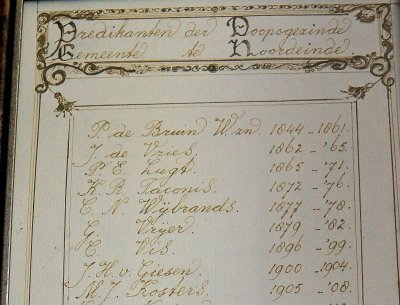 Predikanten der Doopsgezinde
Gemeente te Noordeinde.
P. de Bruin Wzn. 1844 - 1861.
J. de Vries. 1862 - '65.
P. E. Lugt. 1865 - '71.
K. R. Taconis. 1872 - '76.
C. N. Wijbrands. 1877 - '78.
G. Vrijer 1879 - '82.
C. Vis. 1896 - '99.
J. H. v. Giesen. 1900 - 1904.
M. J. Kosters. 1905 - '08.